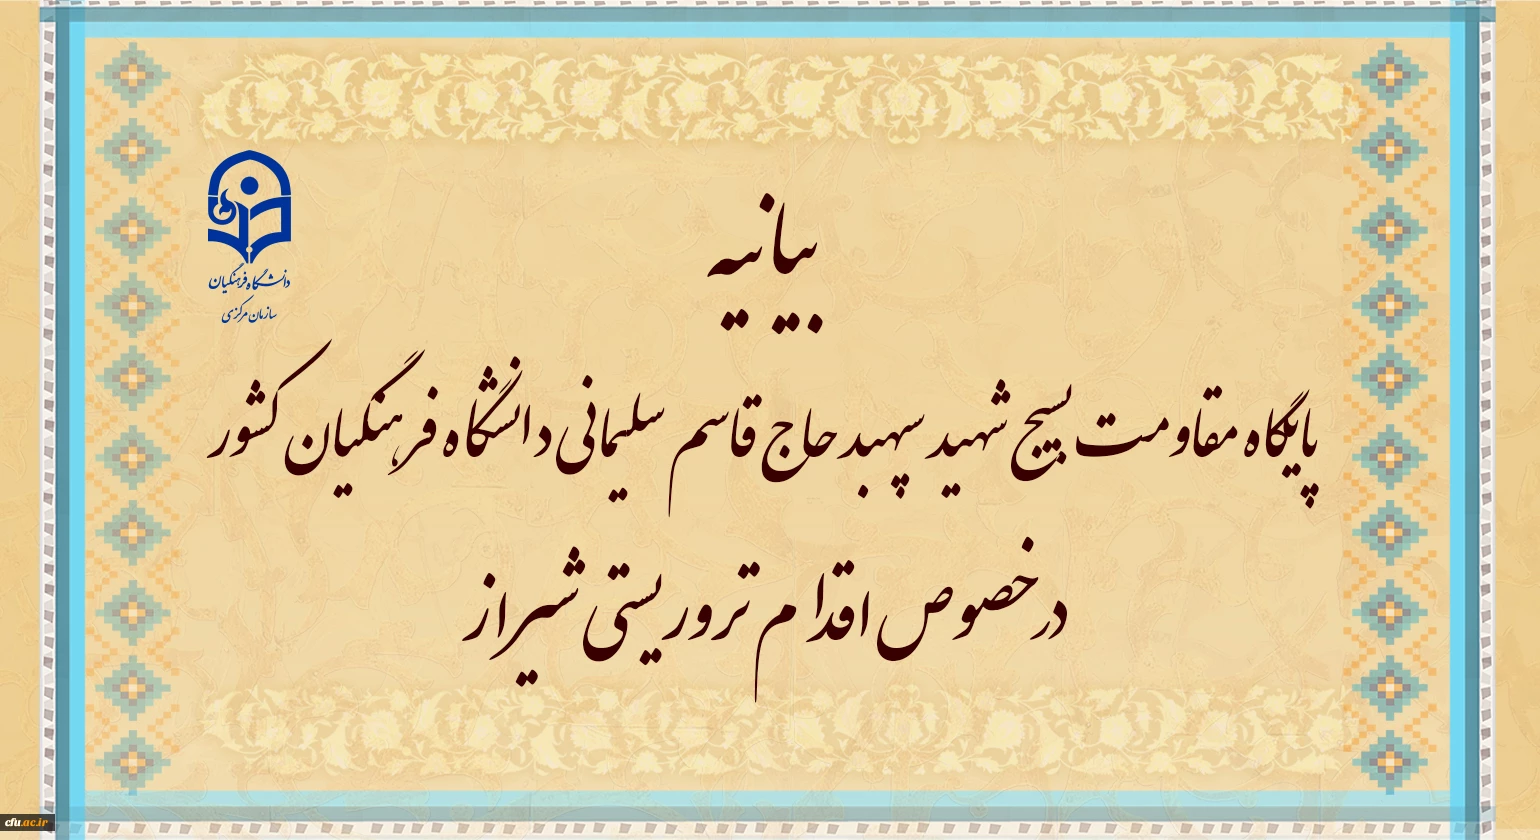 دانشگاه فرهنگیان
سازمان مرکزی
بیانیه
پایگاه مقاومت بسیج شهید سپهبد حاج قاسم سلیمانی دانشگاه فرهنگیان کشور
در خصوص اقدام تروریستی شیراز
cfu.ac.ir